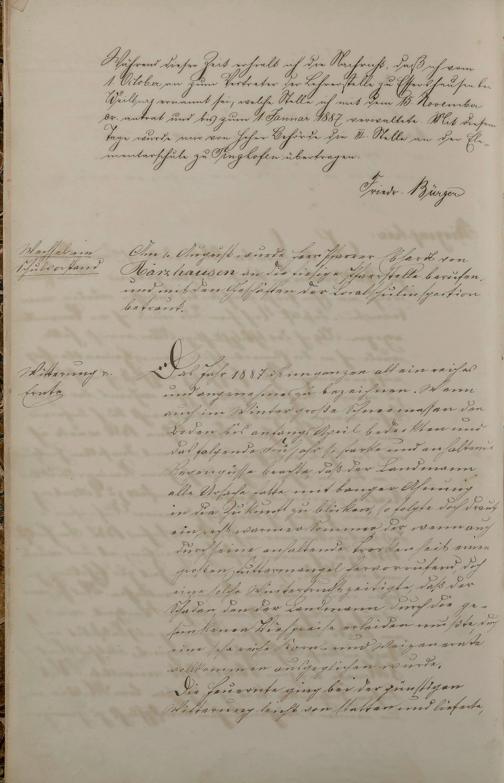 Während dieser Zeit erhielt ich die Nachricht, daß ich vom
1. October an zum Vertreter der Lehrerstelle zu hausen bei
Weilburg ernannt sei, welche Stelle ich mit dem 15 November
cr. antrat und bis zum 1 Januar 1887 verwaltete. Mit diesem
Tage wurde mir von hoher Behörde die II. Stelle an der Ele-
mentarschule zu übertragen.
Friedr. Bürger
Wechsel im
Schulvorstand
Am 1. August wurde Herr Pfarrer von
Harzhausen an die hiesige Pfarrstelle berufen
und mit den Geschäften der Localschulinspection
betraut.
Witterung u.
Ernte
Das Jahr 1887 ist im ganzen als ein reiches
und angenehmes zu bezeichnen. Wenn
auch im Winter große Schneemassen den
Boden bis anfangs April bedeckten und
das folgende Frühjahr so starke und anhaltende
Regengüsse brachte daß der Landmann
alle Ursache hatte mit banger Ahnung
in die Zukunft zu blicken, so folgte doch drauf
ein recht warmer Sommer der wenn auch
durch seine anhaltende Trockenheit einen
großen Futtermangel hervorrufend doch
eine solche zeitigte, daß der
Schaden den der Landmann durch die ge-
sunkenen Viehpreise erleiden mußte, durch
eine reiche Korn- und Weizenernte
vollkommen ausgeglichen wurde.
Die Heuernte ging bei der günstigen
Witterung leicht von Statten und lieferte,